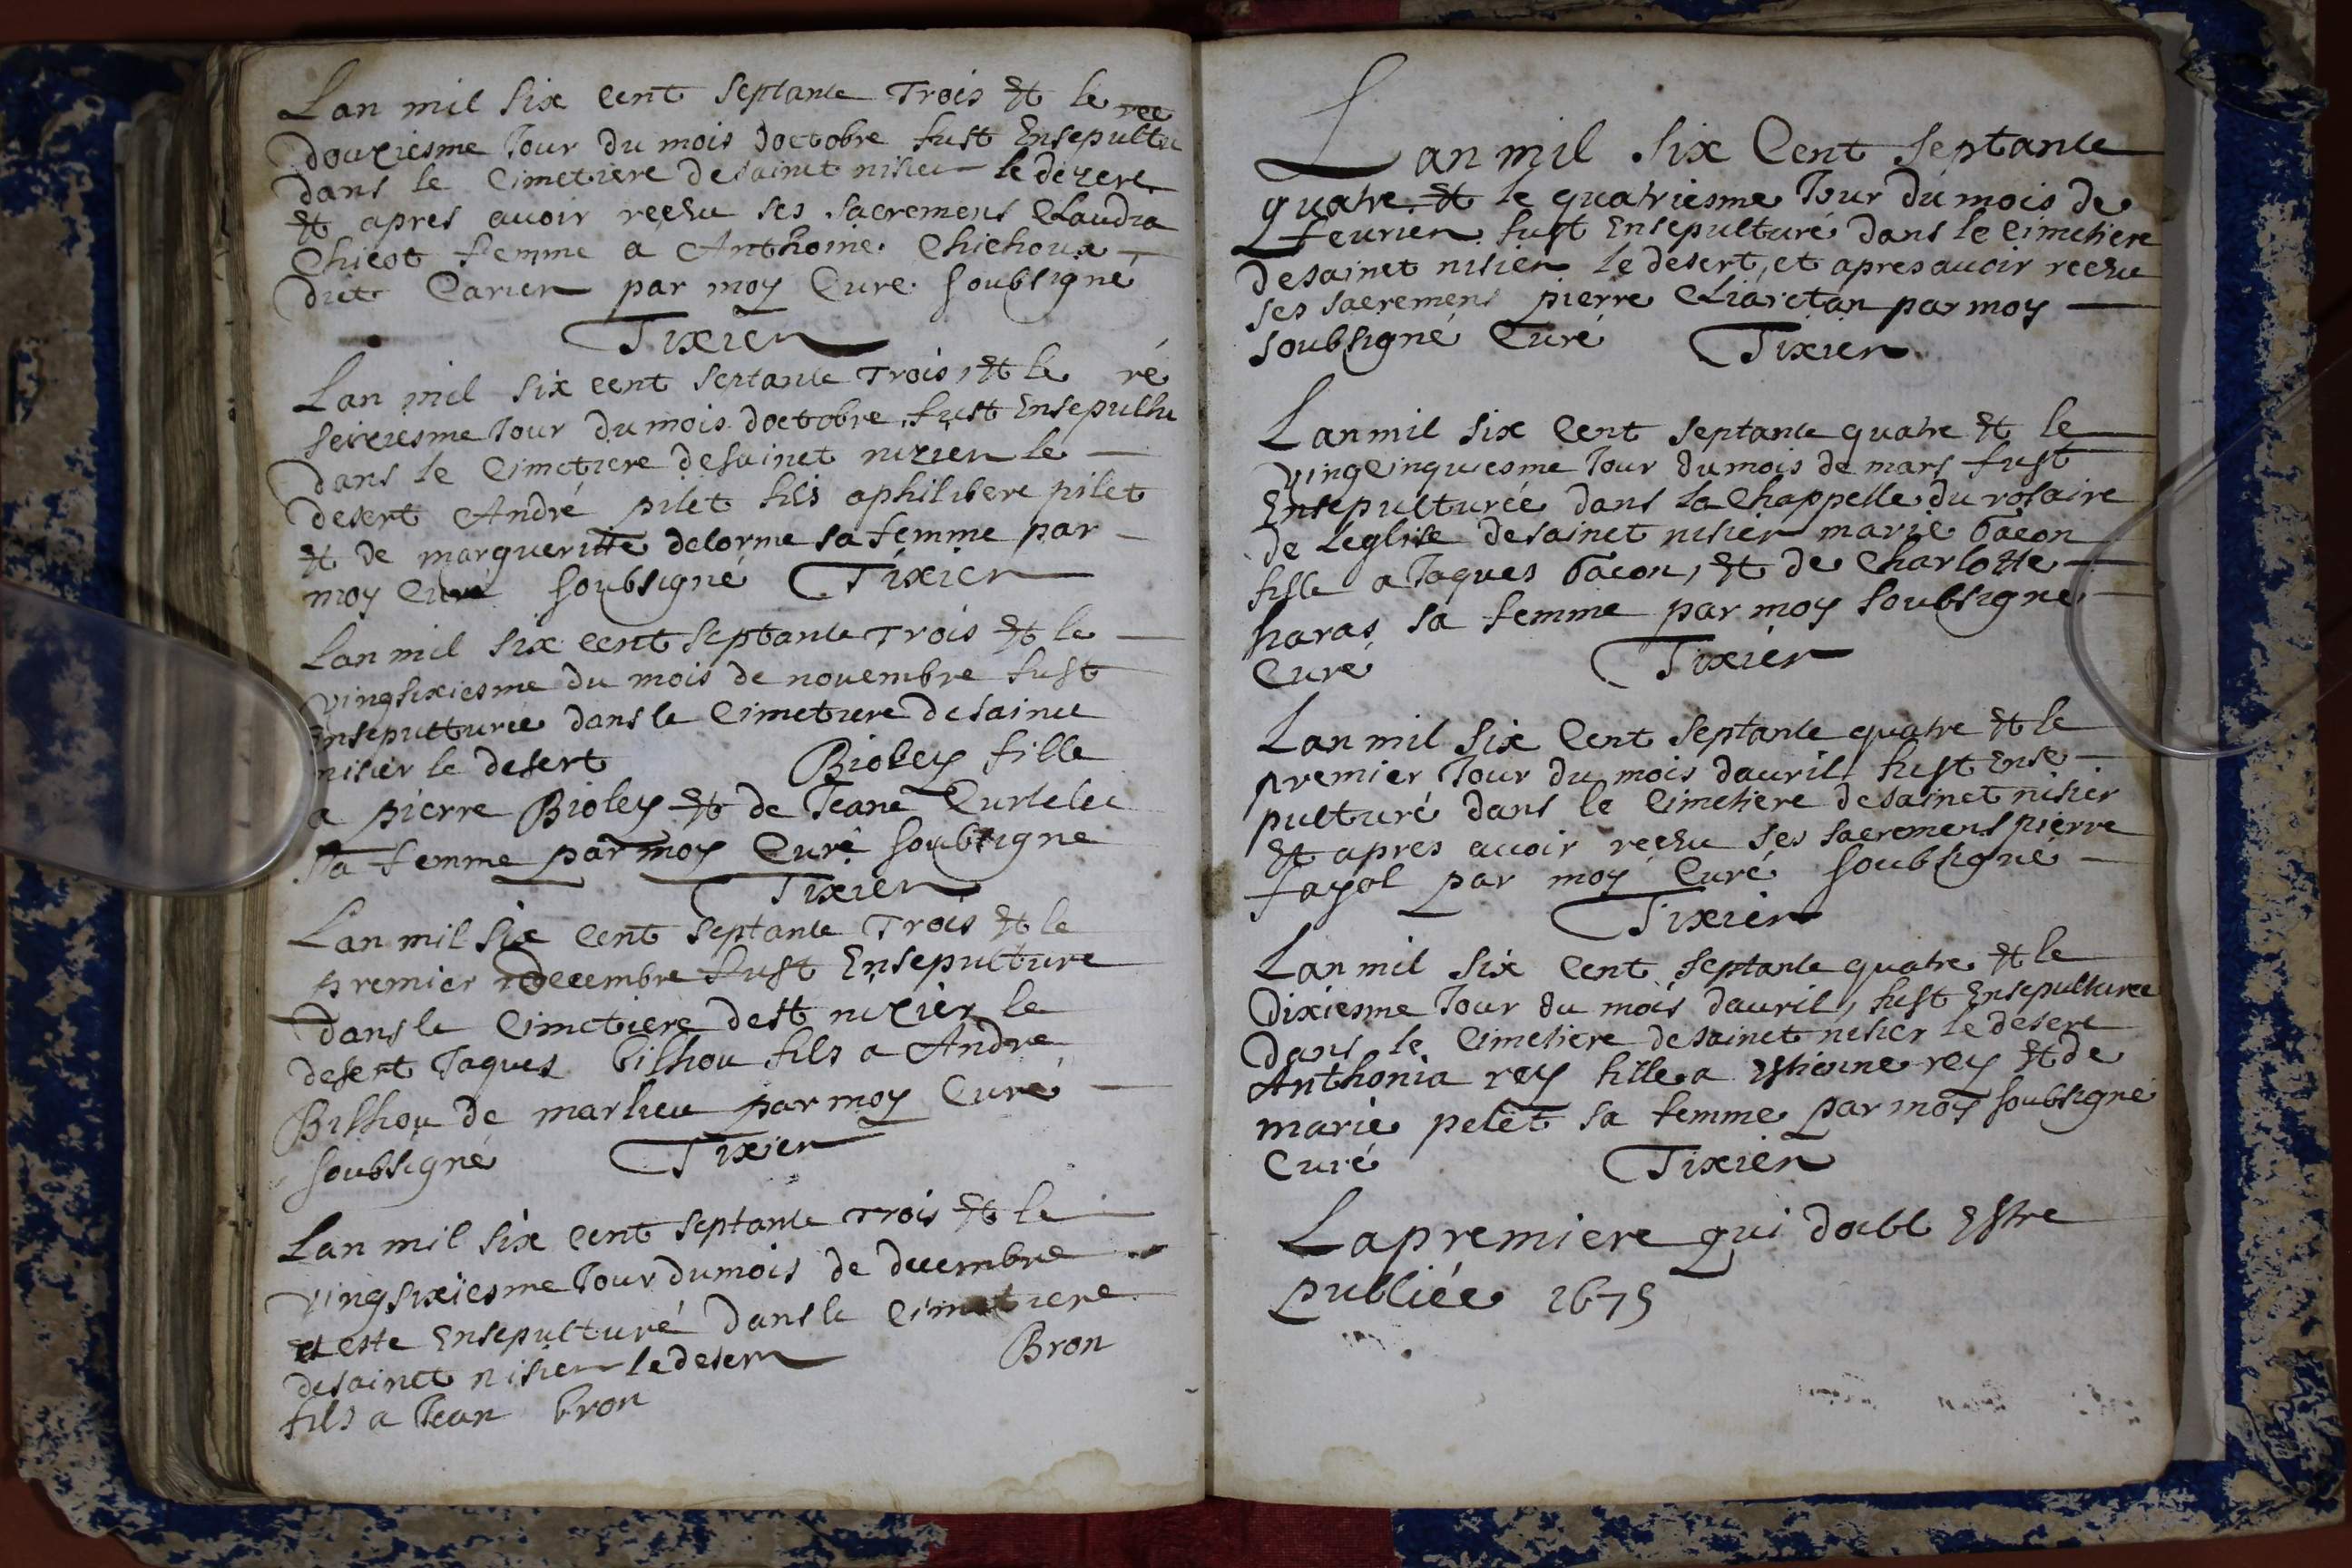 Lan mil six cent septante Trois et le
douziesme Jour du mois doctobre fust Ensepultu
ree
dans le Cimetiere de sainct nisier le dezert
et apres auoir reçhu ses sacremens Claudia
Chicot femme a Anthoine Chichoux
dict Carier par moy Curé soubsigné
Tixier
Lan mil six cent septante Trois, et le
seiziesme Jour du mois doctobre fust Ensepultu
ré
dans le Cimetiere de sainct nizier le
desert André pilet fils a philibert pilet
et de margueritte delorme sa femme par
moy Curé soubsigné Tixier
Lan mil six cent septante Trois et le
vingsixiesme du mois de nouembre fust
Ensepulturée dans le Cimetiere de sainct
nisier le desert Bioley fille
a pierre Bioley et de Jeane
sa femme par moy Curé soubsigné
Tixier
Lan mil six cent septante Trois et le
premier decembre fust Ensepulturé
dans le Cimetiere de st nizier le
desert Jaques bilhou fils a André
Bilhou de marlieu par moy Curé
soubsigné Tixier
Lan mil six cent septante Trois et le
vingsixiesme Jour du mois de decembre
et esté Ensepulturé dans le Cimetiere
de sainct nisier le desert Bron
fils a Jean bron
Lan mil six Cent septante
quatre et le quatriesme Jour du mois de
feurier fust Ensepulturé dans le Cimetiere
de sainct nisier le desert, et apres auoir reçhu
ses sacremens pierre par moy
soubsigné Curé Tixier
Lan mil six Cent septante quatre et le
vingcinquiesme Jour du mois de mars fust
Ensepulturée dans la Chappelle du rosaire
de Leglise de sainct nisier marie bacon
fille a Jaques bacon, et de Charlotte
haras sa femme par moy soubsigné
Curé Tixier
Lan mil six Cent septante quatre et le
premier Jour du mois dauril fust Ense
pulturé dans le Cimetiere de sainct nisier
et apres auoir reçhu ses sacremens pierre
fayol par moy Curé soubsigné
Tixier
Lan mil six Cent septante quatre et le
dixiesme Jour du mois dauril, fust Ensepulturée
dans le Cimetiere de sainct nisier le desert
Anthonia rey fille a Estienne rey et de
marie pelet sa femme par moy soubsigné
Curé Tixier
La premiere qui doibt Estre
publiée 1675